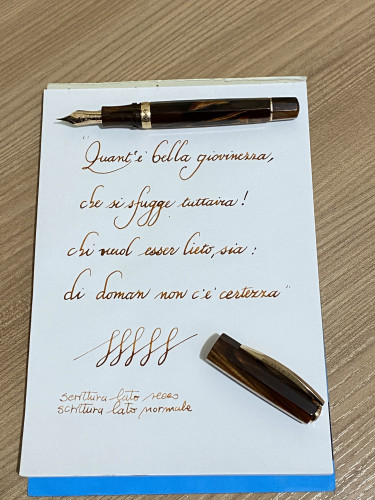 "Quant'è bella giovinezza,
che si sfugge tuttavia!
chi vuol esser lieto, sia:
di doman non c'è certezza"
scrittura lato
scrittura lato normale